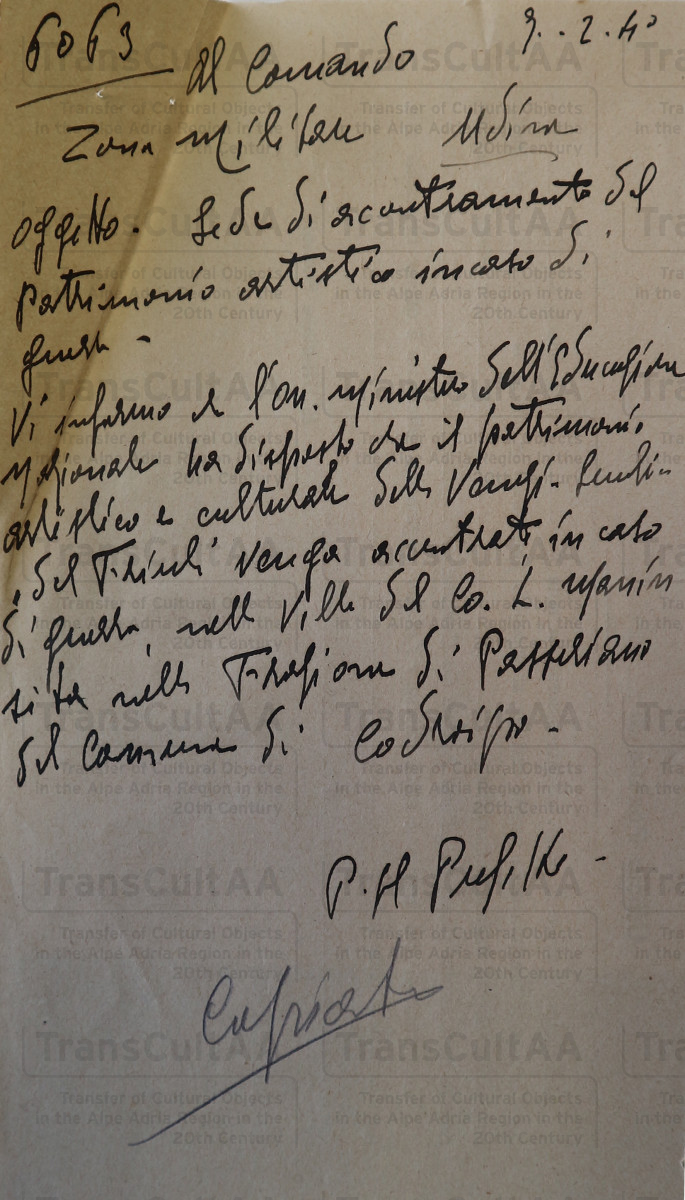 6063
9.-2.40
Al Comando
Zona Militare Udine
Oggetto. Sede di accentramento del
patrimonio artistico in caso di
guerra -
Vi informo che l'on. Ministro dell'Educazione
Nazionale ha disposto che il patrimonio
artistico e culturale della Venezia-Giulia-
del Friuli venga accentrato in caso
di guerra, nella Villa del Co. L. Manin
sita nella Frazione di Passariano
del Comune di Codroipo -
P. Il Prefetto -
Copiata
TransCultAA
Transfer of Cultural Objects
in the Alpe Adria Region in the
20th Century